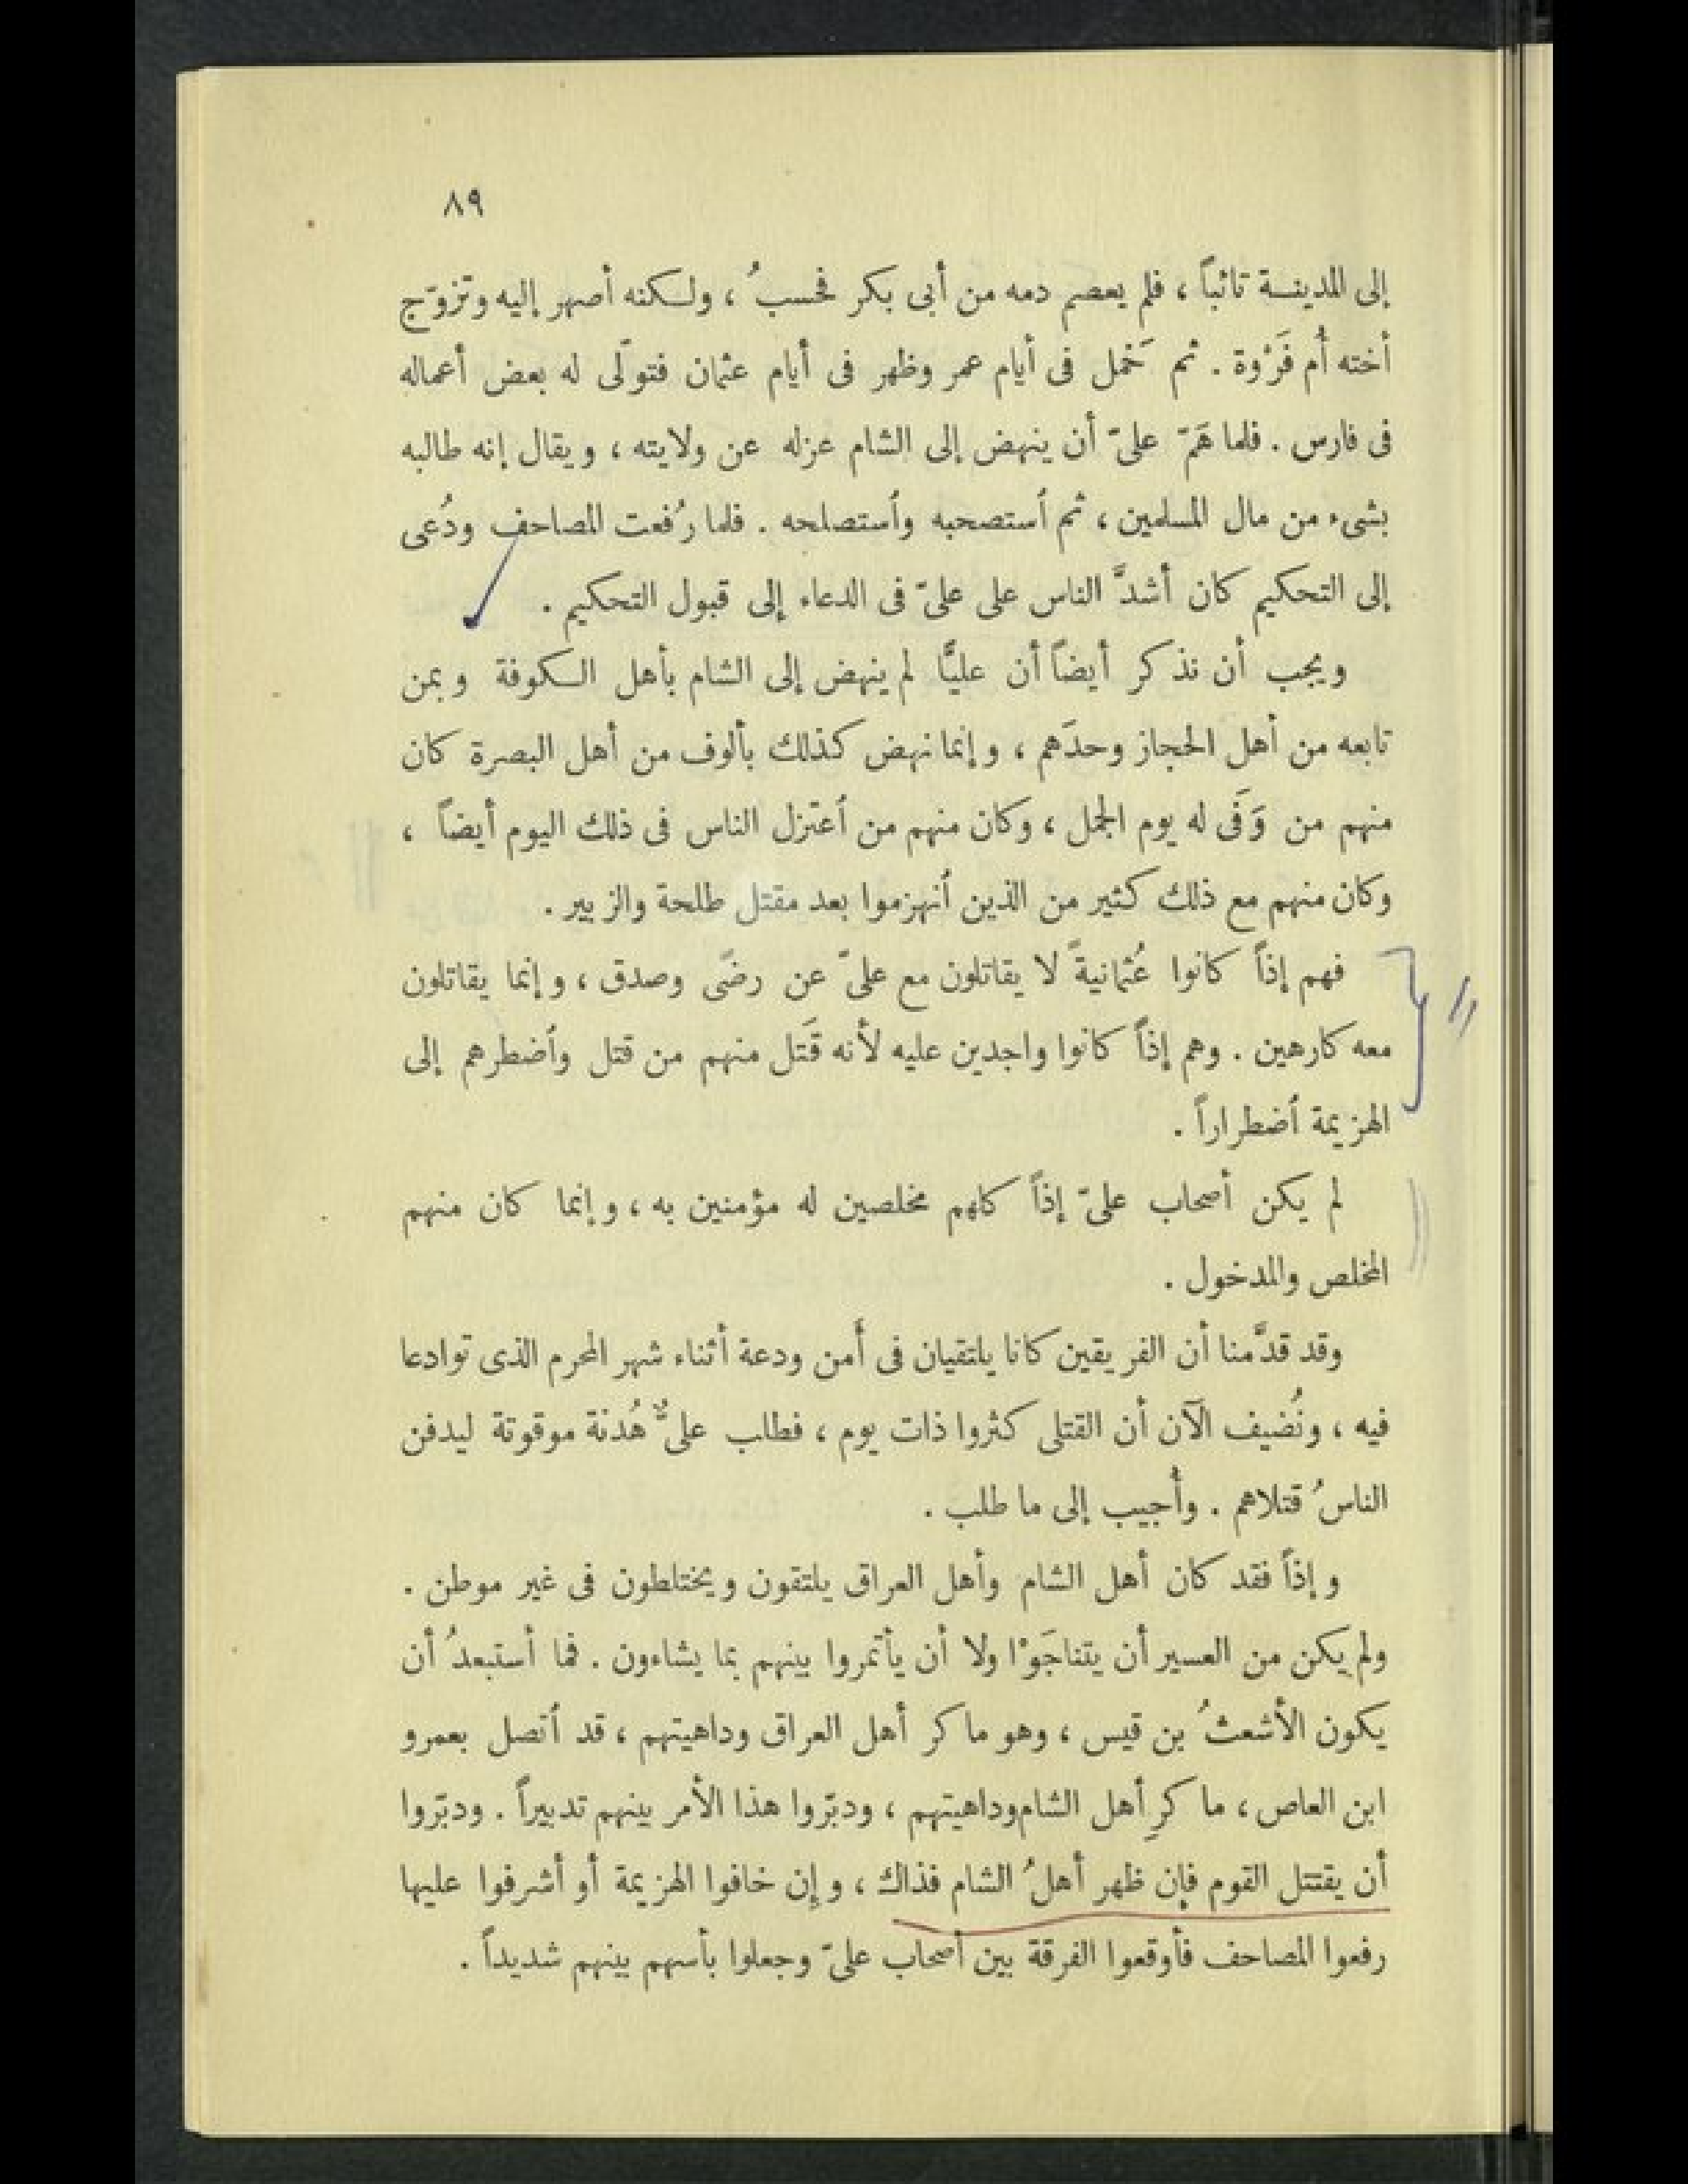 ٨٩
إلى المدينة تائباً ، فلم يعصم دمه من أبى بكر فحسبُ ، ولكنه أصهر إليه وتزوّج
أخته أُم فَرْوة . ثم خَمل فى أيام عمر وظهر فى أيام عثمان فتولّى له بعض أعماله
فى فارس . فلما هَمّ علىّ أن ينهض إلى الشام عزله عن ولايته ، ويقال إنه طالبه
بشىء من مال المسلمين ، ثم ٱستصحبه وٱستصلحه . فلما رُفعت المصاحف ودُعى
إلى التحكيم كان أشدَّ الناس على علىّ فى الدعاء إلى قبول التحكيم .
ويجب أن نذكر أيضاً أن عليًّا لم ينهض إلى الشام بأهل الكوفة وبمن
تابعه من أهل الحجاز وحدَهم ، وإنما نهض كذلك بألوف من أهل البصرة كان
منهم من وَفَى له يوم الجمل ، وكان منهم من ٱعتزل الناس فى ذلك اليوم أيضاً ،
وكان منهم مع ذلك كثير من الذين ٱنهزموا بعد مقتل طلحة والزبير .
فهم إذاً كانوا عُثمانيةً لا يقاتلون مع علىّ عن رضًى وصدق ، وإنما يقاتلون
معه كارهين . وهم إذاً كانوا واجدين عليه لأنه قَتل منهم من قتل وٱضطرهم إلى
الهزيمة ٱضطراراً .
لم يكن أصحاب علىّ إذاً كلهم مخلصين له مؤمنين به ، وإنما كان منهم
المخلص والمدخول .
وقد قدَّمنا أن الفريقين كانا يلتقيان فى أَمن ودعة أثناء شهر المحرم الذى توادعا
فيه ، ونُضيف الآن أن القتلى كثروا ذات يوم ، فطلب علىٌّ هُدنة موقوتة ليدفن
الناسُ قتلاهم . وأُجيب إلى ما طلب .
وإذاً فقد كان أهل الشام وأهل العراق يلتقون ويختلطون فى غير موطن .
ولم يكن من العسير أن يتناجَوْا ولا أن يأتمروا بينهم بما يشاءون . فما أستبعدُ أن
يكون الأشعثُ بن قيس ، وهو ماكر أهل العراق وداهيتهم ، قد ٱتصل بعمرو
ابن العاص ، ماكرِ أهل الشام وداهيتهم ، ودبّروا هذا الأمر بينهم تدبيراً . ودبّروا
أن يقتتل القوم فإن ظهر أهلُ الشام فذاك ، وإن خافوا الهزيمة أو أشرفوا عليها
رفعوا المصاحف فأوقعوا الفرقة بين أصحاب علىّ وجعلوا بأسهم بينهم شديداً .